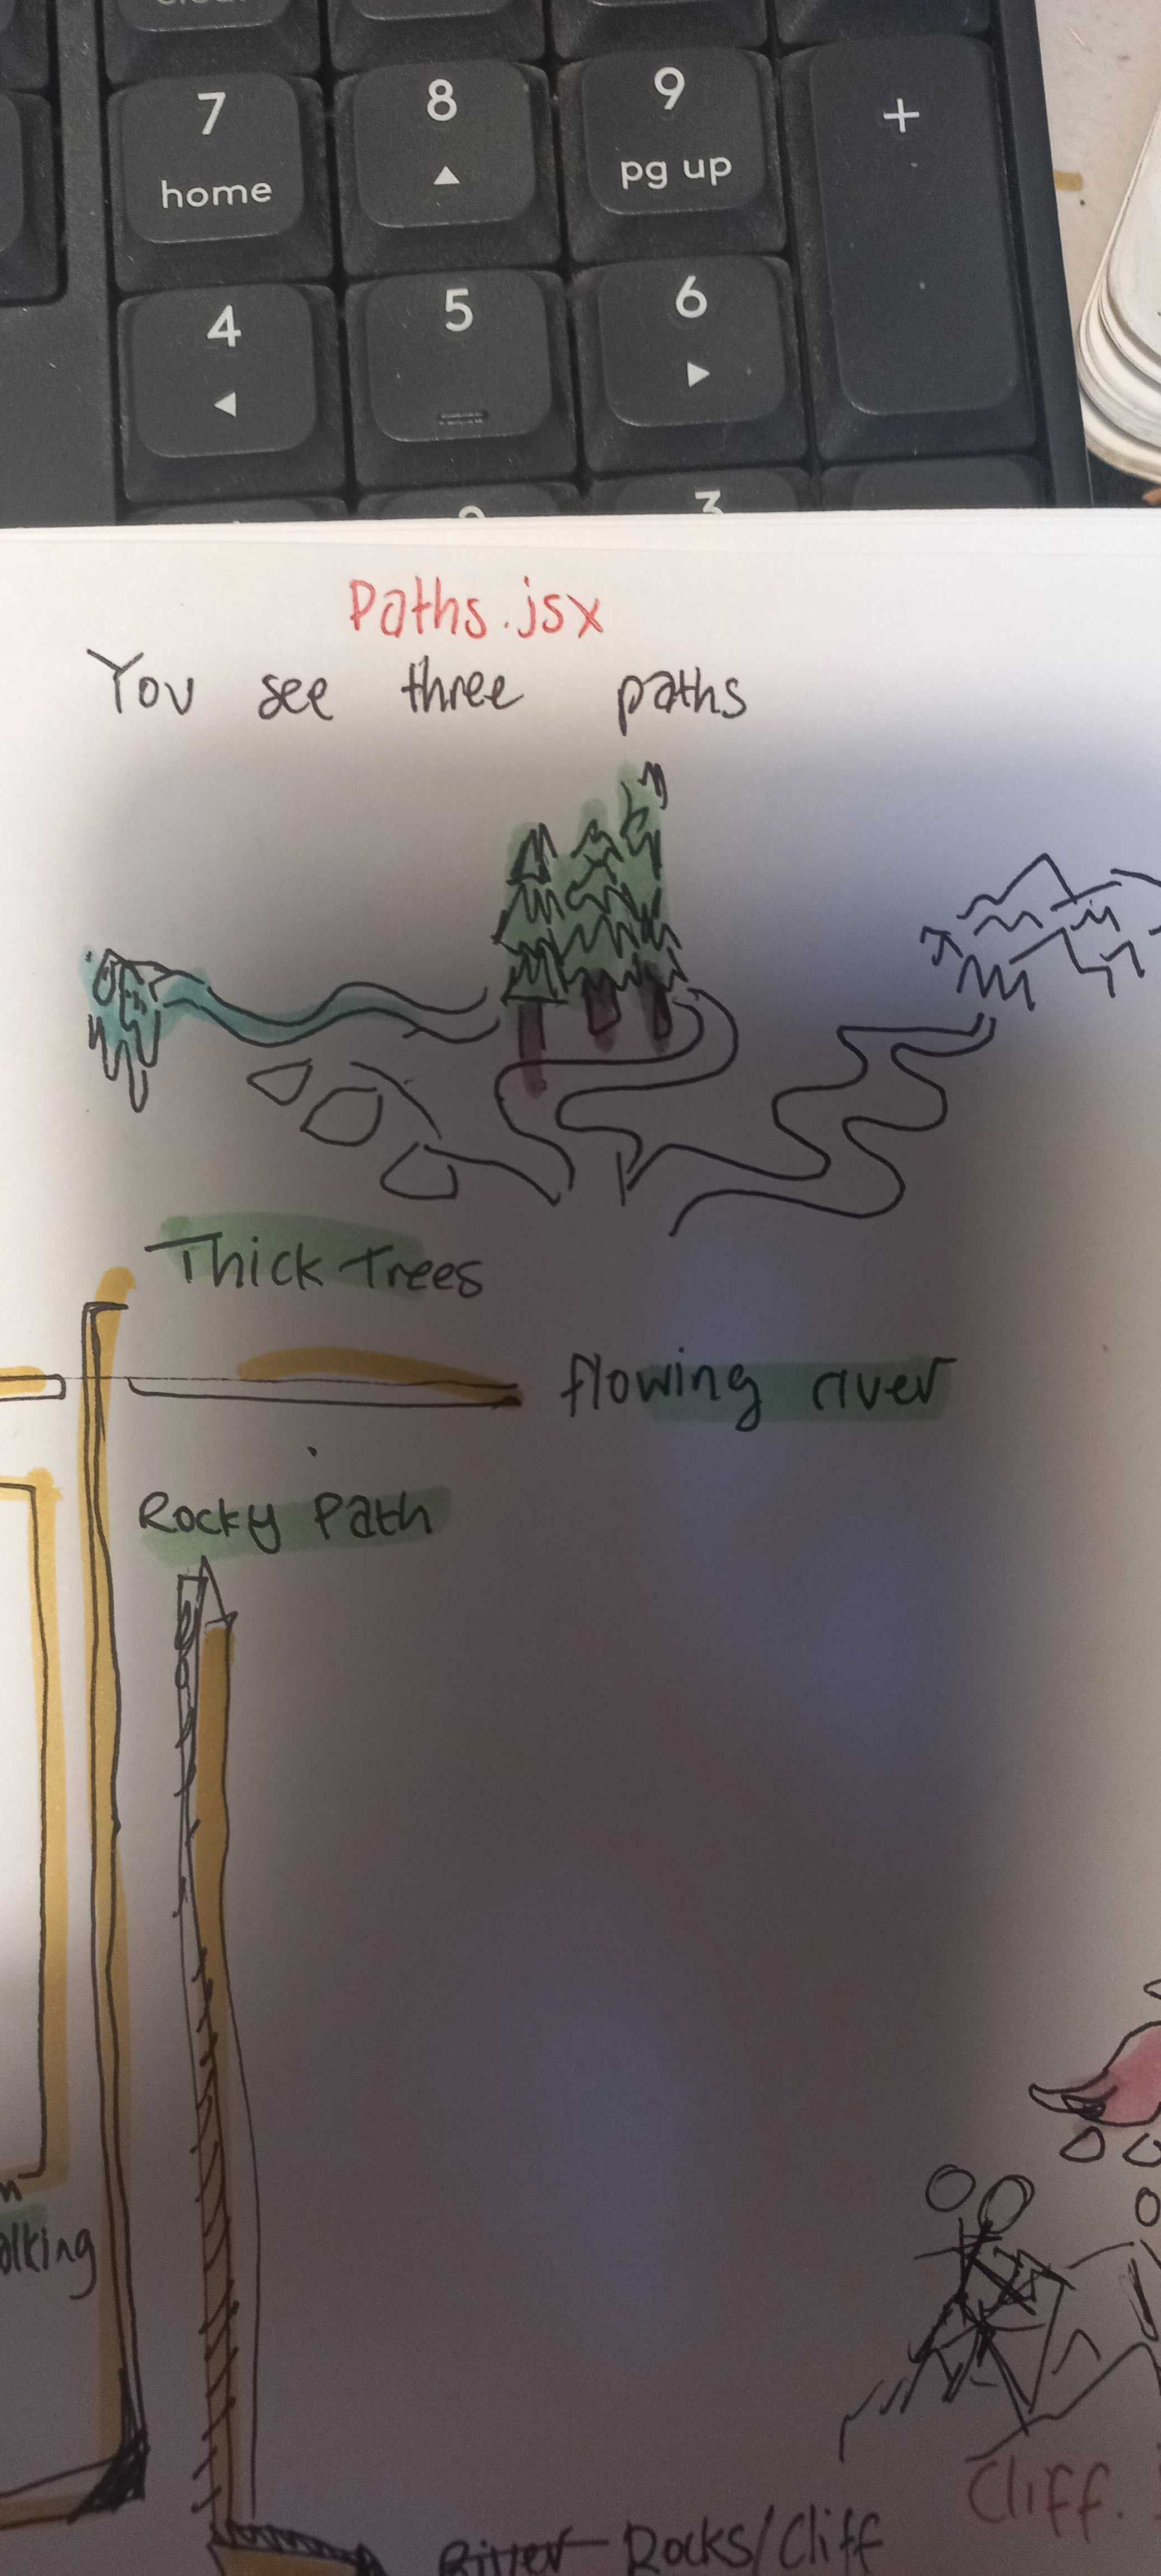 7
8
9
+
home
pg up
4
5
6
3
Paths.jsx
You see three paths
Thick Trees
flowing river
Rocky Path
alking
Cliff.
River Rocks/Cliff